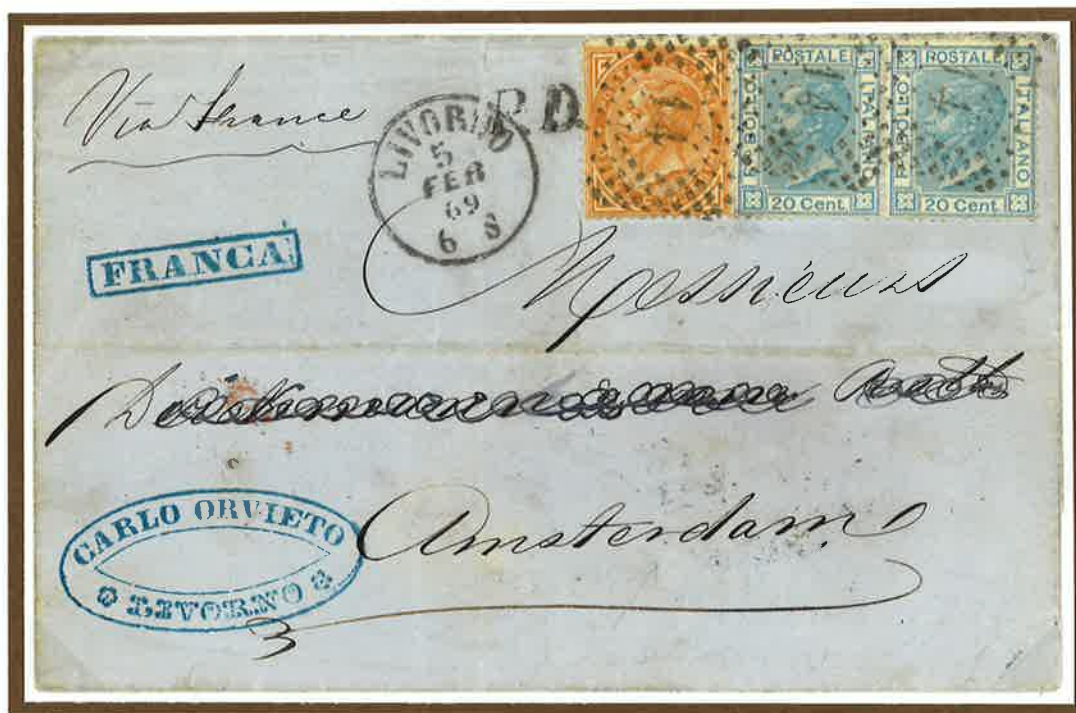 Via France
P.D.
LIVORNO
5
FEB
69
6 S
POSTALE
FRANCO BOLLO
ITALIANO
20 Cent.
POSTALE
FRANCO BOLLO
ITALIANO
20 Cent.
FRANCA
Messieurs
Amsterdam
CARLO ORVIETO
LIVORNO
3